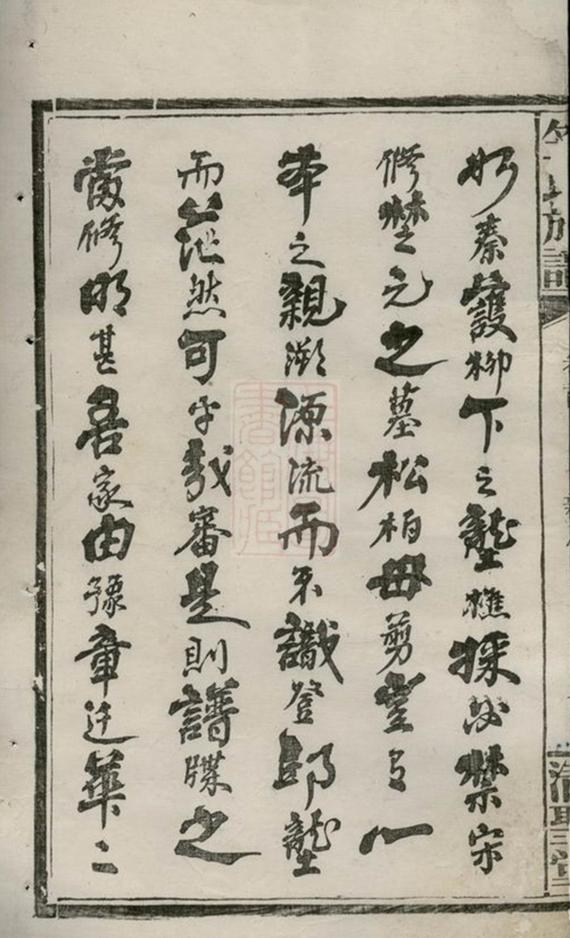 如秦護柳下之壟樵採必禁宋
修楚元之墓松柏毋剪豈有一
本之親溯源流而不識登邱壟
而茫然可乎哉審是則譜牒之
當修明甚吾家由豫章迁華二
族譜